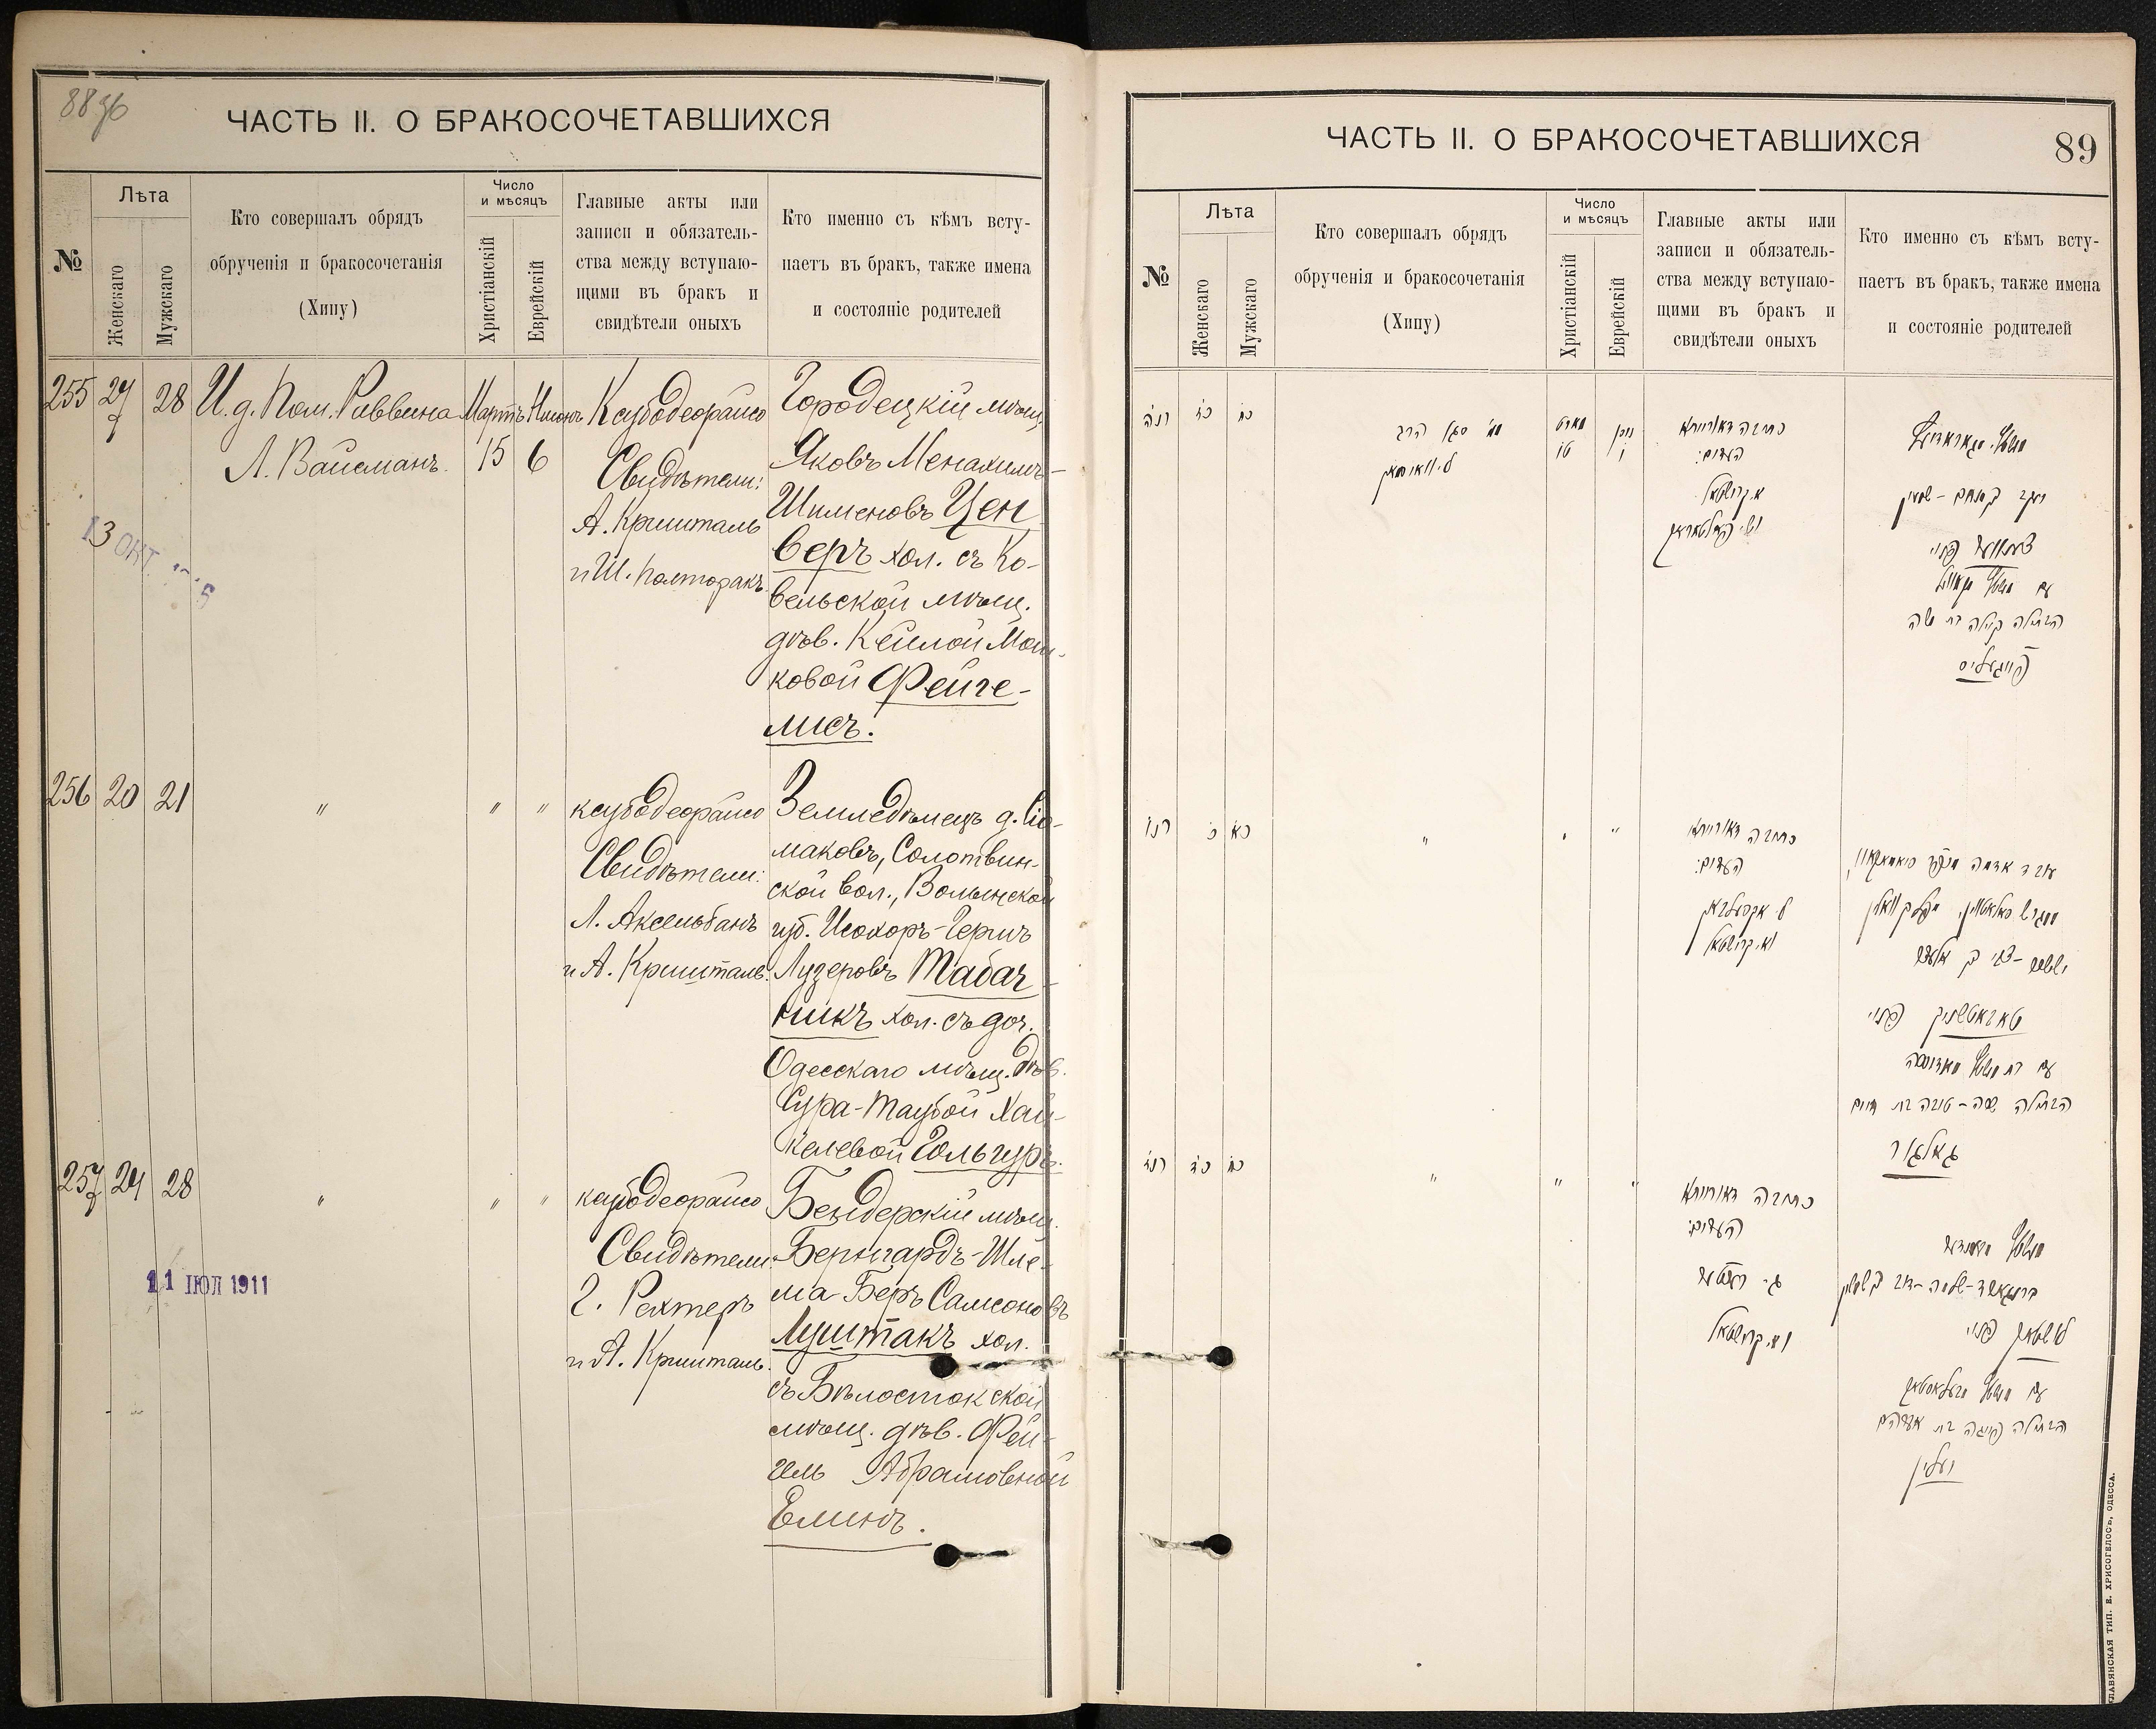 88 об
ЧАСТЬ II. О БРАКОСОЧЕТАВШИХСЯ
№
Лѣта
Женскаго
Мужскаго
Кто совершалъ обрядъ
обрученія и бракосочетанія
(Хипу)
Число
и мѣсяцъ
Христіанскій
Еврейскій
Главные акты или
записи и обязатель-
ства между вступаю-
щими въ бракъ и
свидѣтели оныхъ
Кто именно съ кѣмъ всту-
паетъ въ бракъ, также имена
и состояніе родителей
255 27 28 И. д. Пом. Раввина
Л. Вайсманъ.
Мартъ Нисонъ
15 6
Ксубодеорайсо
Свидѣтели:
А. Кришталь
и Ш. Полторакъ.
Городецкій мѣщ.
Яковъ Менахимъ-
Шименовъ Цен
веръ хол. съ Ко-
вельской мѣщ.
дѣв. Кейлой Мош-
ковой Фейге-
лисъ.
13 ОКТ
256 20 21 " " "
ксубодеорайсо
Свидѣтели:
Л. Аксельбанъ
и А. Кришталь.
Земледѣлецъ д. Сю-
маковъ, Солотвин-
ской вол., Волынской
губ. Исохоръ-Гершъ
Лузеровъ Табач-
никъ хол. съ доч.
Одесскаго мѣщ. дѣв.
Сура-Таубой Хай-
келевой Гольгуръ.
257 24 28 " " "
ксубодеорайсо
Свидѣтели:
Г. Рехтеръ
и А. Кришталь.
Бендерскій мѣщ.
Бернгардъ-Шле-
ма-Беръ Самсоновъ
Луштакъ хол.
съ Бѣлостокской
мѣщ. дѣв. Фей-
гель Абрамовной
Елинъ.
11 ІЮЛ 1911
ЧАСТЬ II. О БРАКОСОЧЕТАВШИХСЯ
89
№
Лѣта
Женскаго
Мужскаго
Кто совершалъ обрядъ
обрученія и бракосочетанія
(Хипу)
Число
и мѣсяцъ
Христіанскій
Еврейскій
Главные акты или
записи и обязатель-
ства между вступаю-
щими въ бракъ и
свидѣтели оныхъ
Кто именно съ кѣмъ всту-
паетъ въ бракъ, также имена
и состояніе родителей
רנה
כז כח
סגן הרב
ל. ווייסמאן
מארט
ניסן
טו
ו
כתובה דאורייתא
העדים:
א. קרישטאל
יעקב
פנוי
הבתולה קיילה בת משה
פייגעליס
רנו כ כא " " "
כתובה דאורייתא
העדים:
ל. אקסעלבאן
וא. קרישטאל
עובד אדמה
יששכר-צבי בן אלעזר
טאבאטשניק פנוי
הבתולה שרה-טובה בת חיים
גאלגור
רנז כד כח " " "
כתובה דאורייתא
העדים:
ג. רעכטער
וא. קרישטאל
לושטאק פנוי
הבתולה פייגה בת אברהם
יעלין
СЛАВЯНСКАЯ ТИП. Е. ХРИСОГЕЛОСЪ, ОДЕССА.